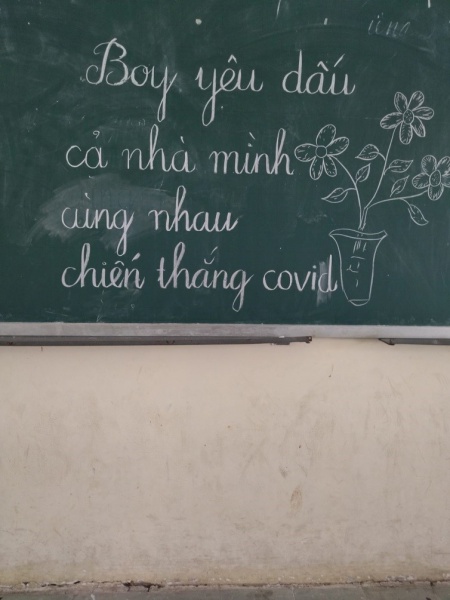 Boy yêu dấu
cả nhà mình
cùng nhau
chiến thắng covid